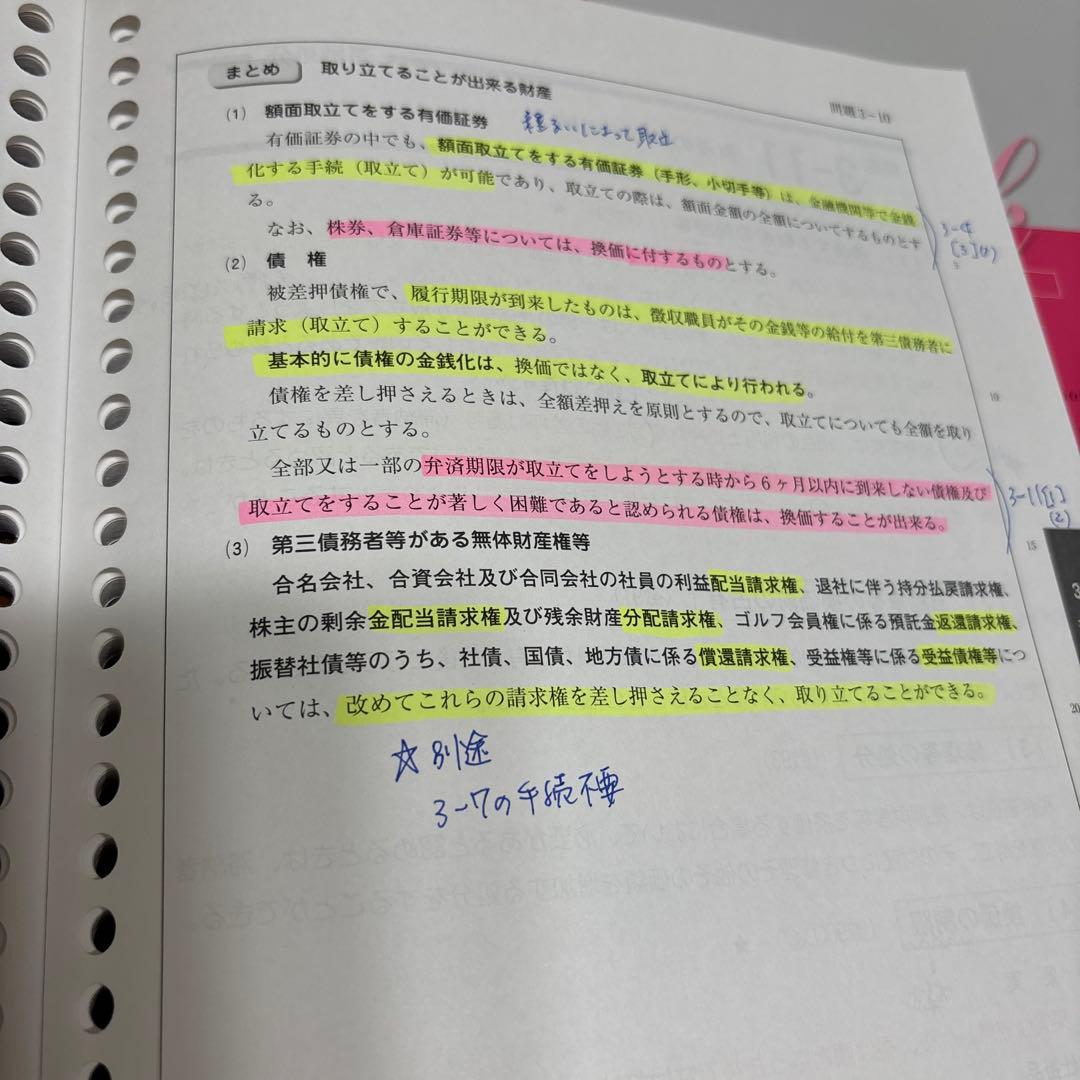 まとめ 取り立てることが出来る財産
問題3-10
(1) 額面取立てをする有価証券
有価証券の中でも、額面取立てをする有価証券(手形、小切手等)は、金融機関等で金銭
化する手続(取立て)が可能であり、取立ての際は、額面金額の全額についてするものとす
る。
なお、株券、倉庫証券等については、換価に付するものとする。
3-4
(2) 債 権
被差押債権で、履行期限が到来したものは、徴収職員がその金銭等の給付を第三債務者に
請求(取立て)することができる。
基本的に債権の金銭化は、換価ではなく、取立てにより行われる。
債権を差し押さえるときは、全額差押えを原則とするので、取立てについても全額を取り
10
立てるものとする。
全部又は一部の弁済期限が取立てをしようとする時から6ヶ月以内に到来しない債権及び
取立てをすることが著しく困難であると認められる債権は、換価することが出来る。
(2)
15
(3) 第三債務者等がある無体財産権等
合名会社、合資会社及び合同会社の社員の利益配当請求権、退社に伴う持分払戻請求権、
株主の剰余金配当請求権及び残余財産分配請求権、ゴルフ会員権に係る預託金返還請求権、
振替社債等のうち、社債、国債、地方債に係る償還請求権、受益権等に係る受益債権等につ
いては、改めてこれらの請求権を差し押さえることなく、取り立てることができる。
20
☆別途
3-7の手続不要